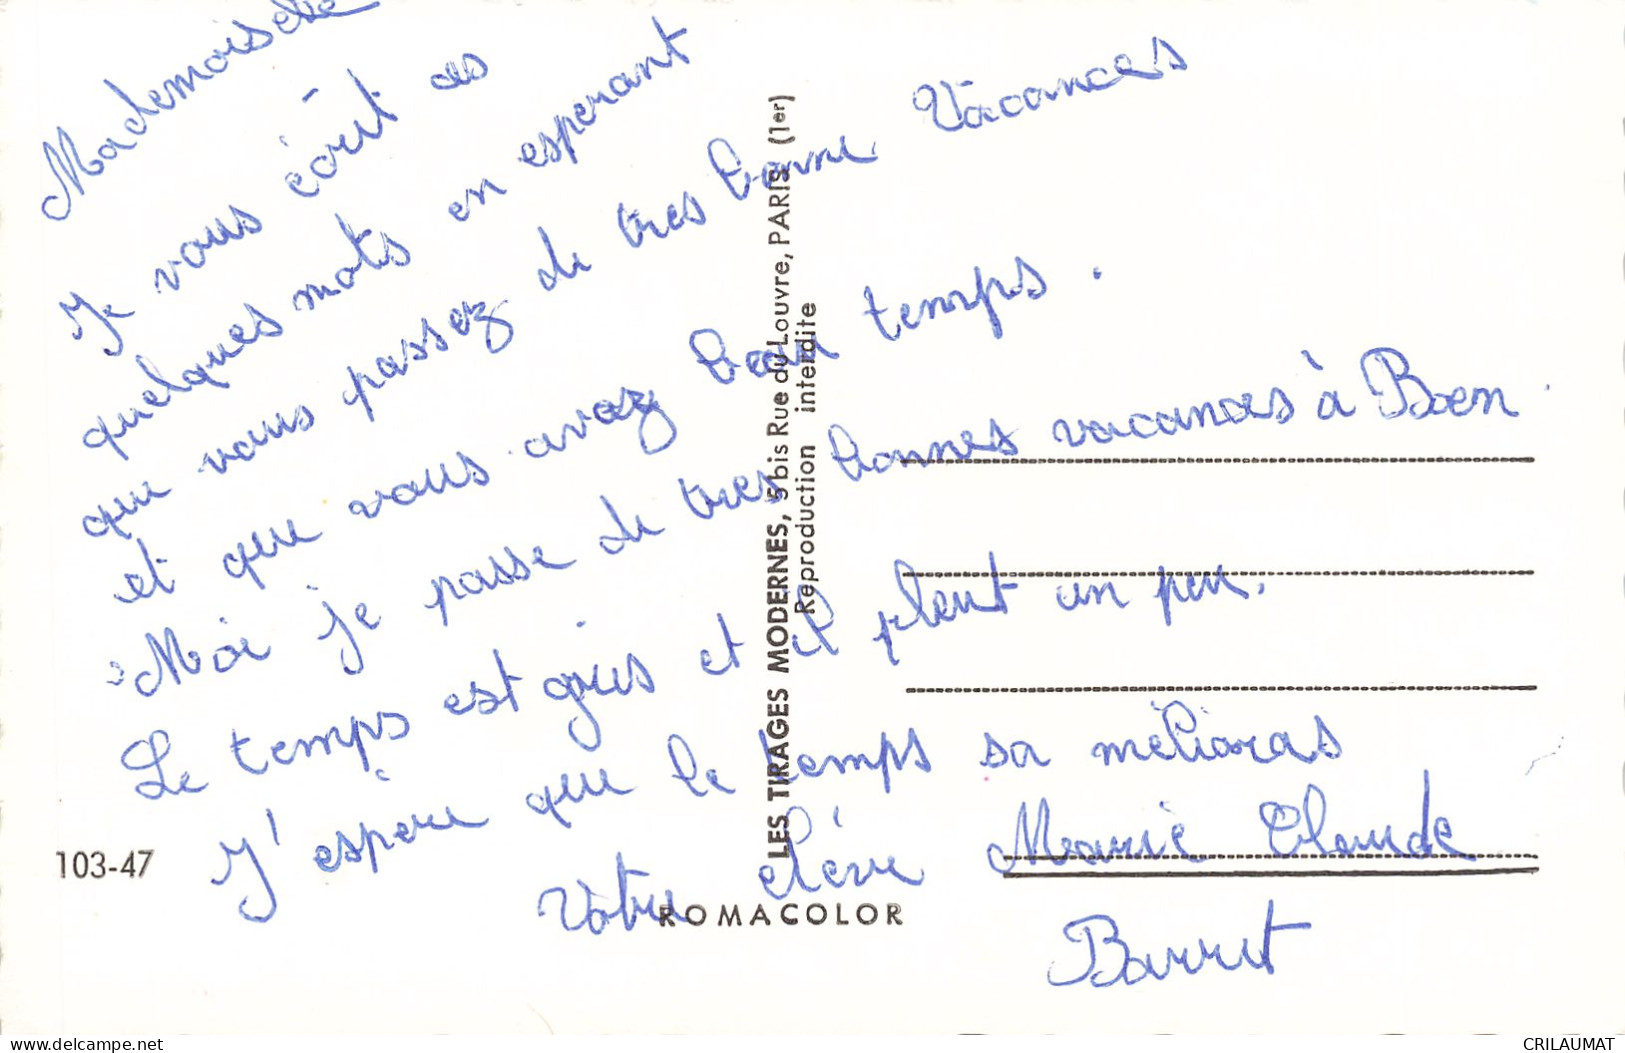 Mademoiselle
Je vous écrit ces
quelques mots en esperant
que vous passez de tres bonne Vacances
et que vous avez beau temps.
Moi je passe de tres bonnes vacances à Boen
Le temps est gris et il pleut un peu.
J'espère que le temps sa mélioras
Votre élève Marie Claude
Barret
LES TIRAGES MODERNES, 5 bis Rue du Louvre, PARIS (1er)
Reproduction interdite
103-47
ROMACOLOR
delcampe.net
CRILAUMAT